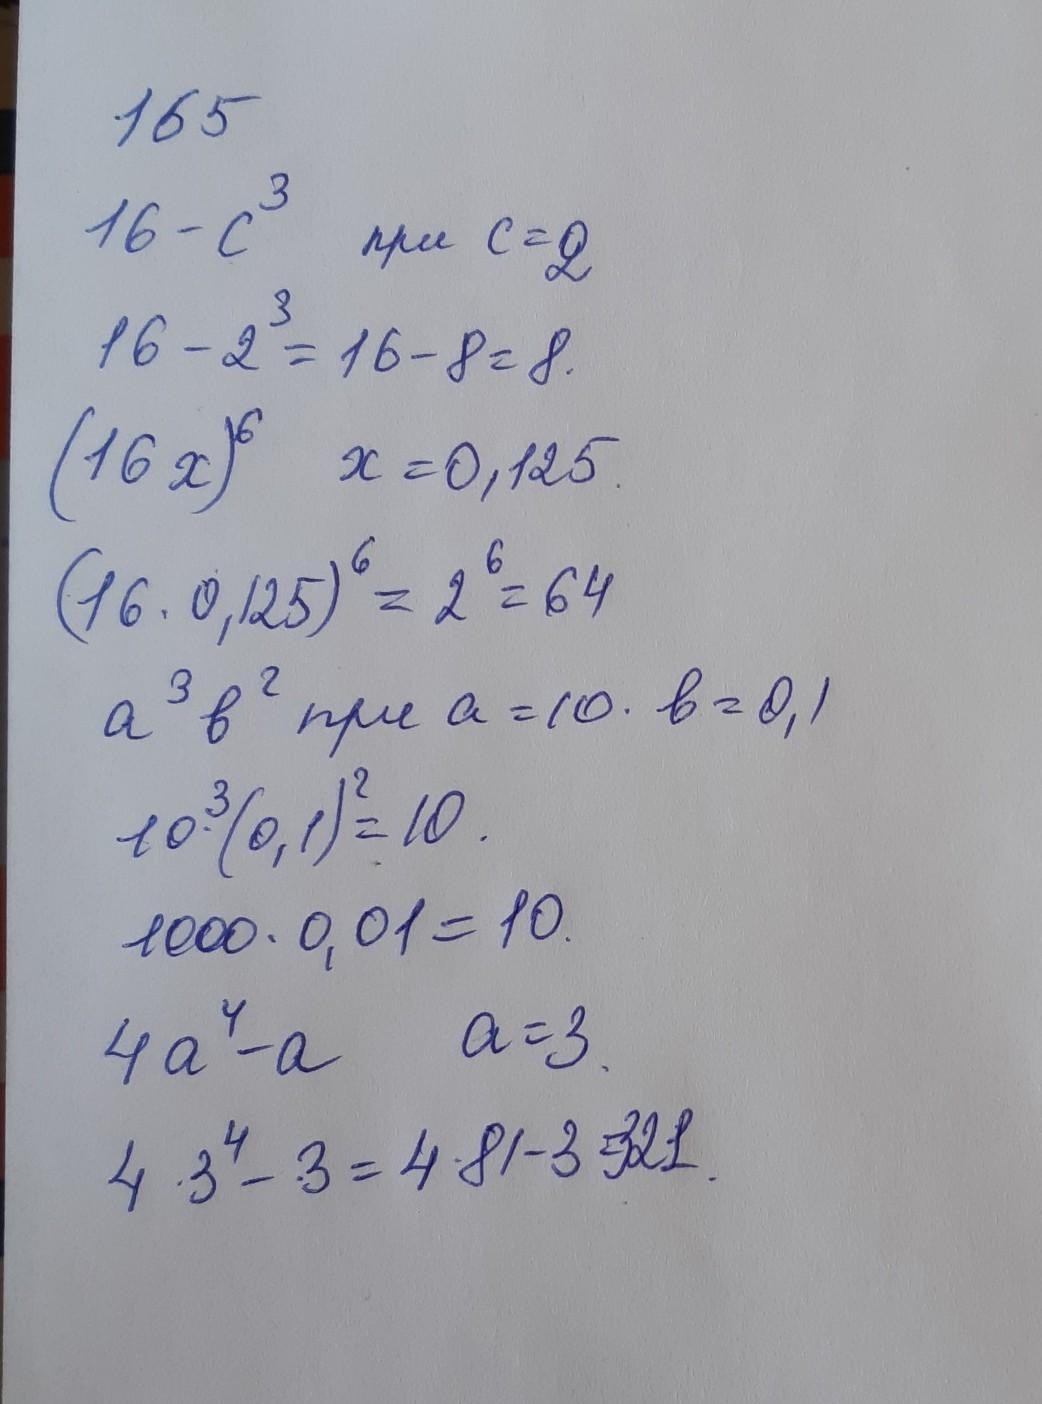 165
16 - c³ при c = 2
16 - 2³ = 16 - 8 = 8.
(16x)⁶ x = 0,125.
(16 · 0,125)⁶ = 2⁶ = 64
a³b² при a = 10. b = 0,1
10³·(0,1)² = 10.
1000 · 0,01 = 10.
4a⁴ - a a = 3.
4 · 3⁴ - 3 = 4 · 81 - 3 = 321.